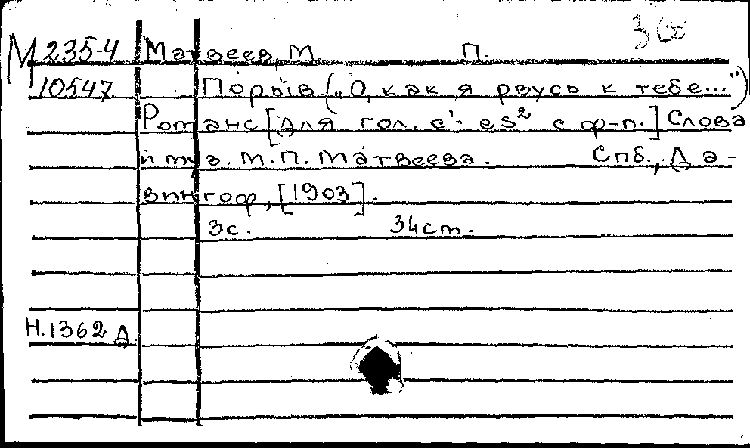 М 235-4 Матвеев, М. П.
10547 Порыв („О, как я рвусь к тебе...")
Романс [для гол. e¹- es² с ф-п.] Слова
и муз. М.П. Матвеева. Спб., Да-
вингоф, [1903].
3с. 34см.
Н.1362 д